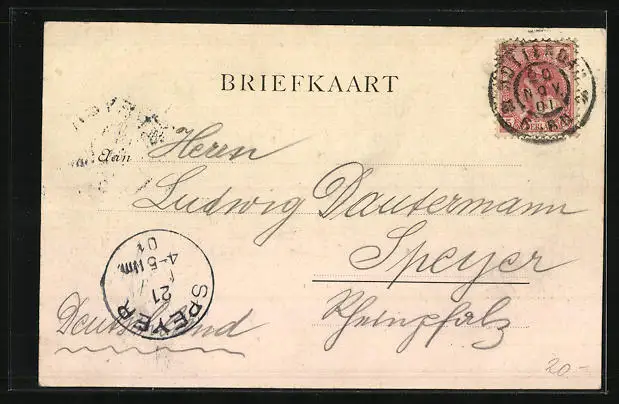 BRIEFKAART
ROTTERDAM
20
NOV
01
Aan
Herrn
Ludwig Dautermann
Speyer
Rheinpfalz
Deutschland
SPEYER
21
4-5 Nm.
01
20.-